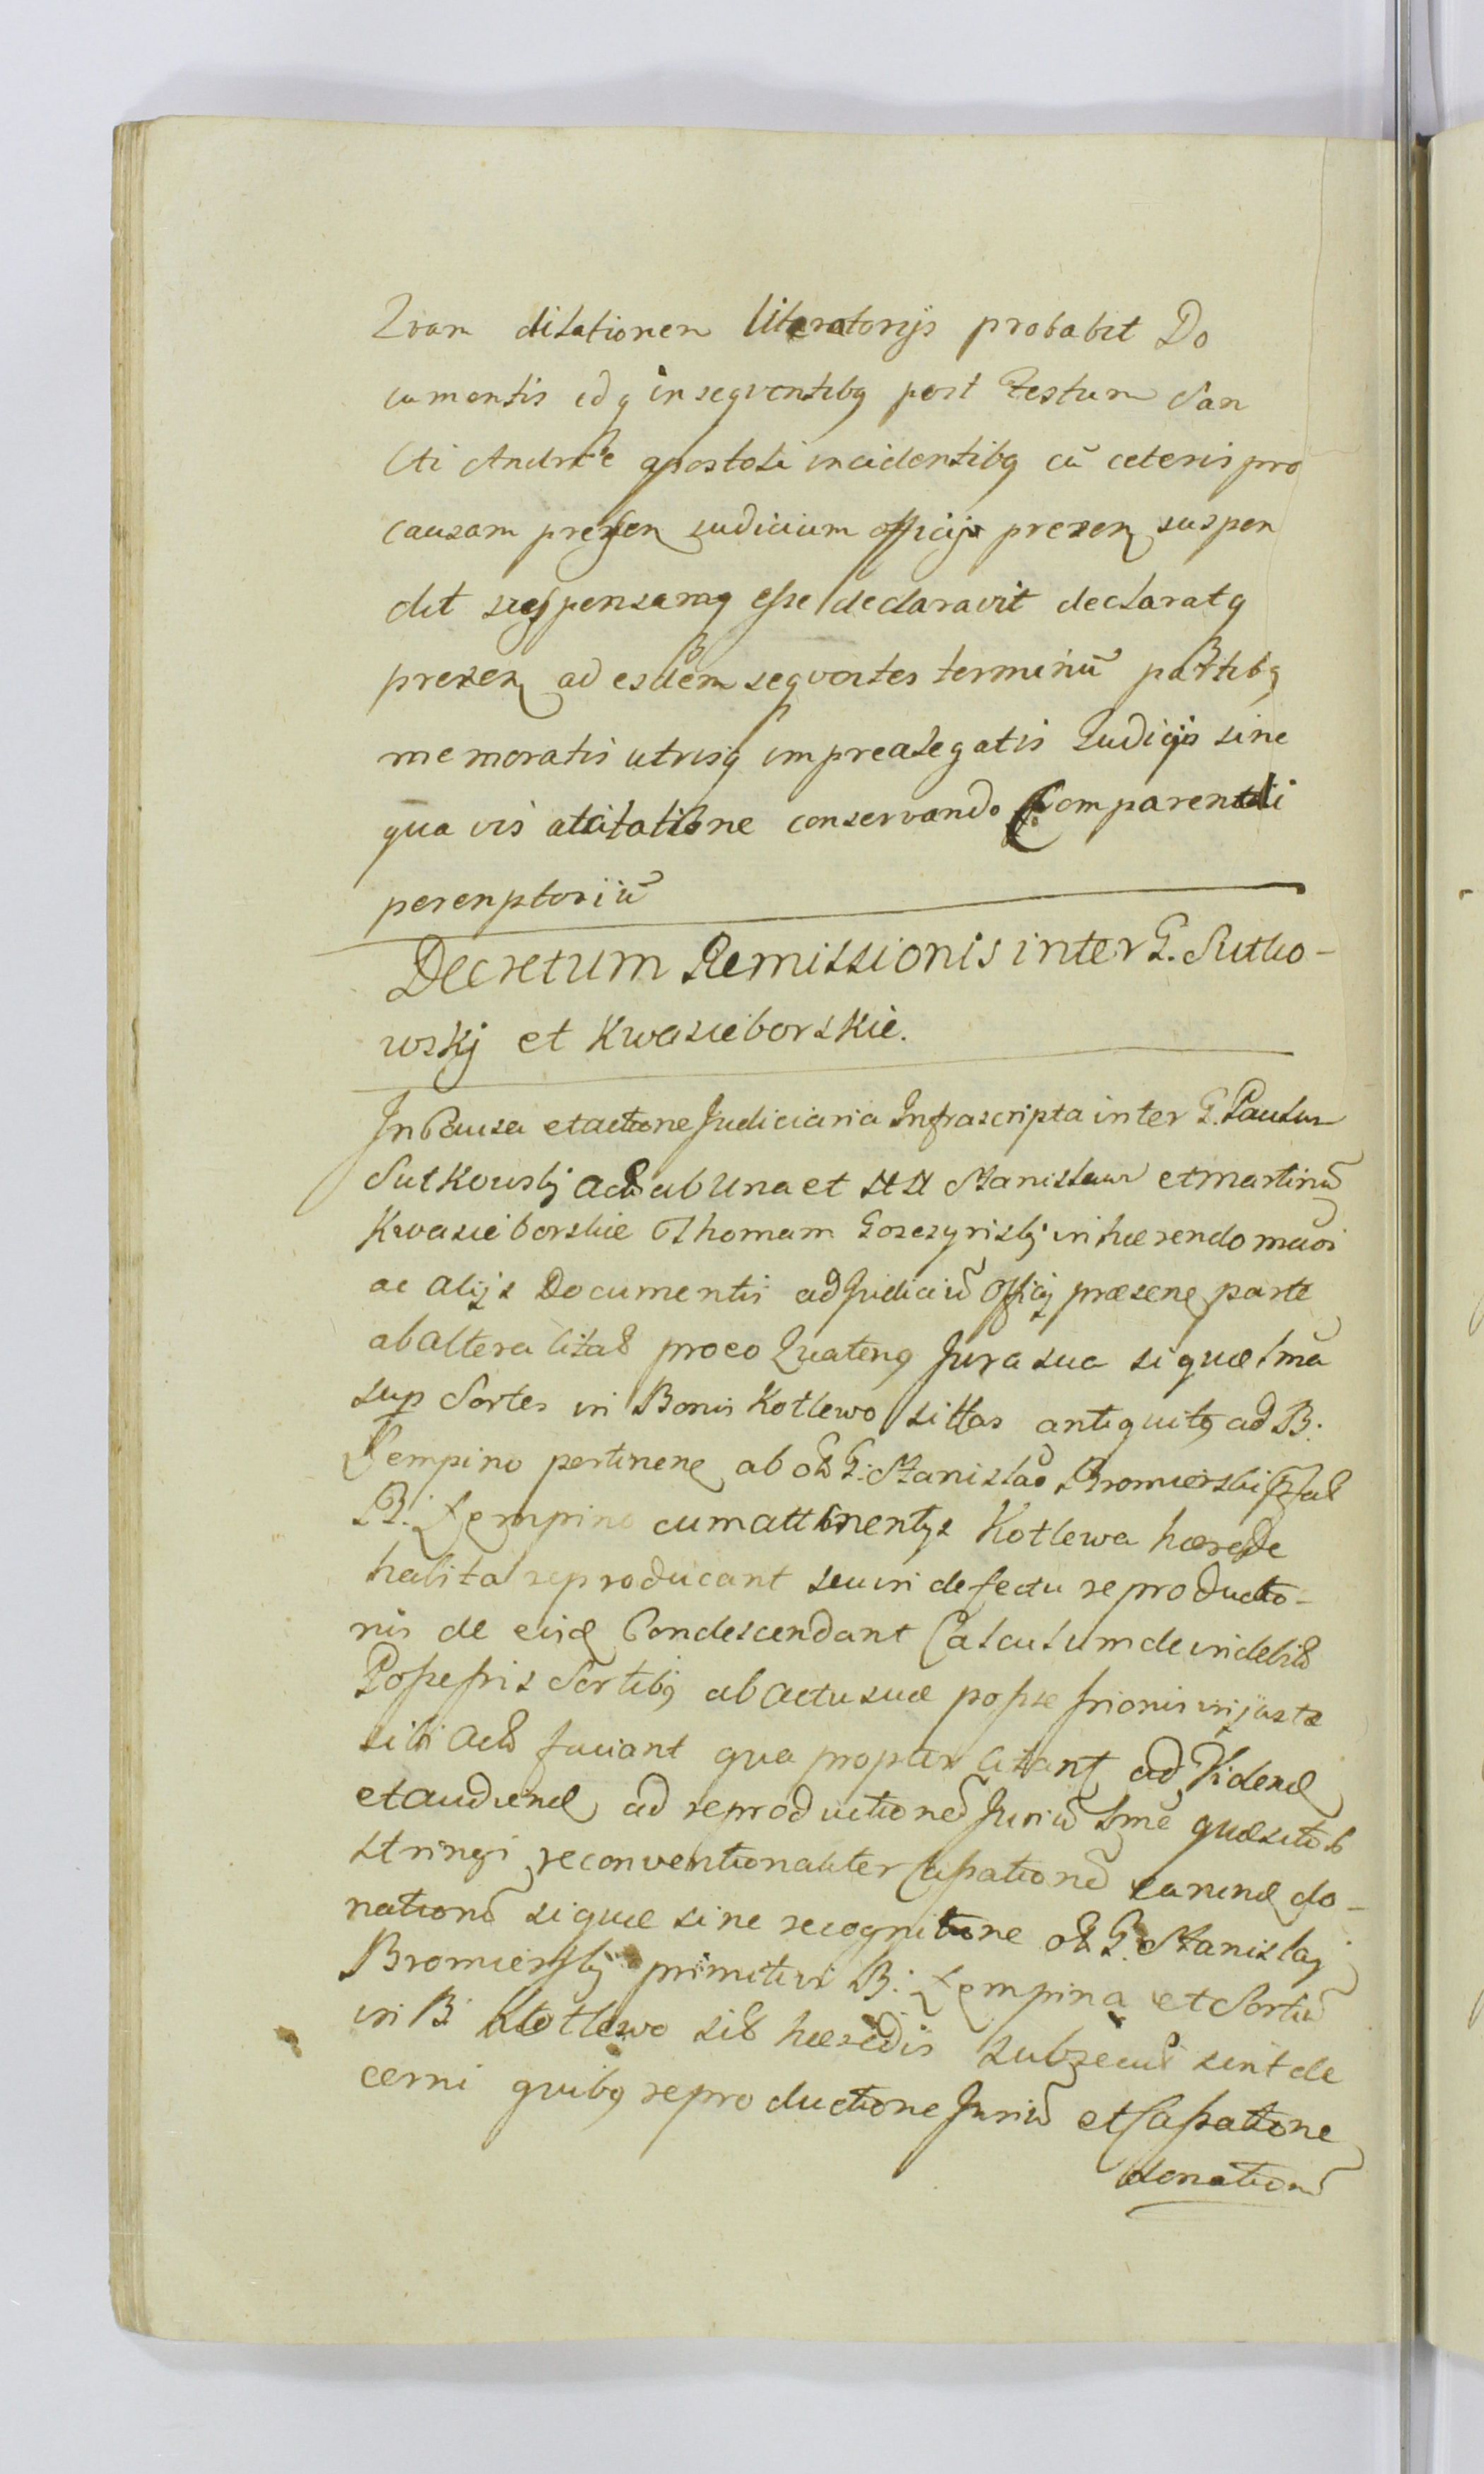 Quam dilationem literatorijs probabit Do
cumentis idq in seqventibq post Festum San
cti Andreæ apostoli incidentibq cū ceteris pro
causam presen Iudicium officij presen suspen
dit suspensamq esse declaravit declaratq
presen ad esdem seqventes terminū partibq
memoratis utrisq in prealegatis Iudicijs sine
qua vis adcitatione conservando Comparendi
peremptoriū
Decretum Remissionis inter G. Sutko-
wskj et Kwasieborskie.
In Causa et actione Judiciaria Infrascripta inter G. Paulum
Sutkowskj ab Una et NN Stanislaum et Martinū
Kwasieborskie Thomam Goszczynskj inhærendo
ac alijs Documentis ad Judiciū Officij præsene parte
ab altera proeo Quatenq Jura sua si quæ lmā
sup Sortes in Bonis Kotlewo sittas antiquitq ad B.
Lempino pertinene ab olb G. Stanislao Bromierski
B. Lempino cum attinentijs Kotlewa hærede
habita reproducant seu in defectu reproductio-
nis de eisd Condescendant Calculum de indebite
Possessis Sortibq ab actu suæ possessionis injustæ
sibi faciant qua propter citant ad Videnđ
et audienđ ad reproductionē Juriū lme quæsitor
stringi reconventionaliter Cassationē earunđ do-
nationū si quæ sine recognitione olb G. Stanislaj
Bromierskj primitivi B. Lempina et Sortiū
in B. Kotlewo sit hæredis subsecut sint de
cerni quibq reproductione Juriū et Cassatione
donationū